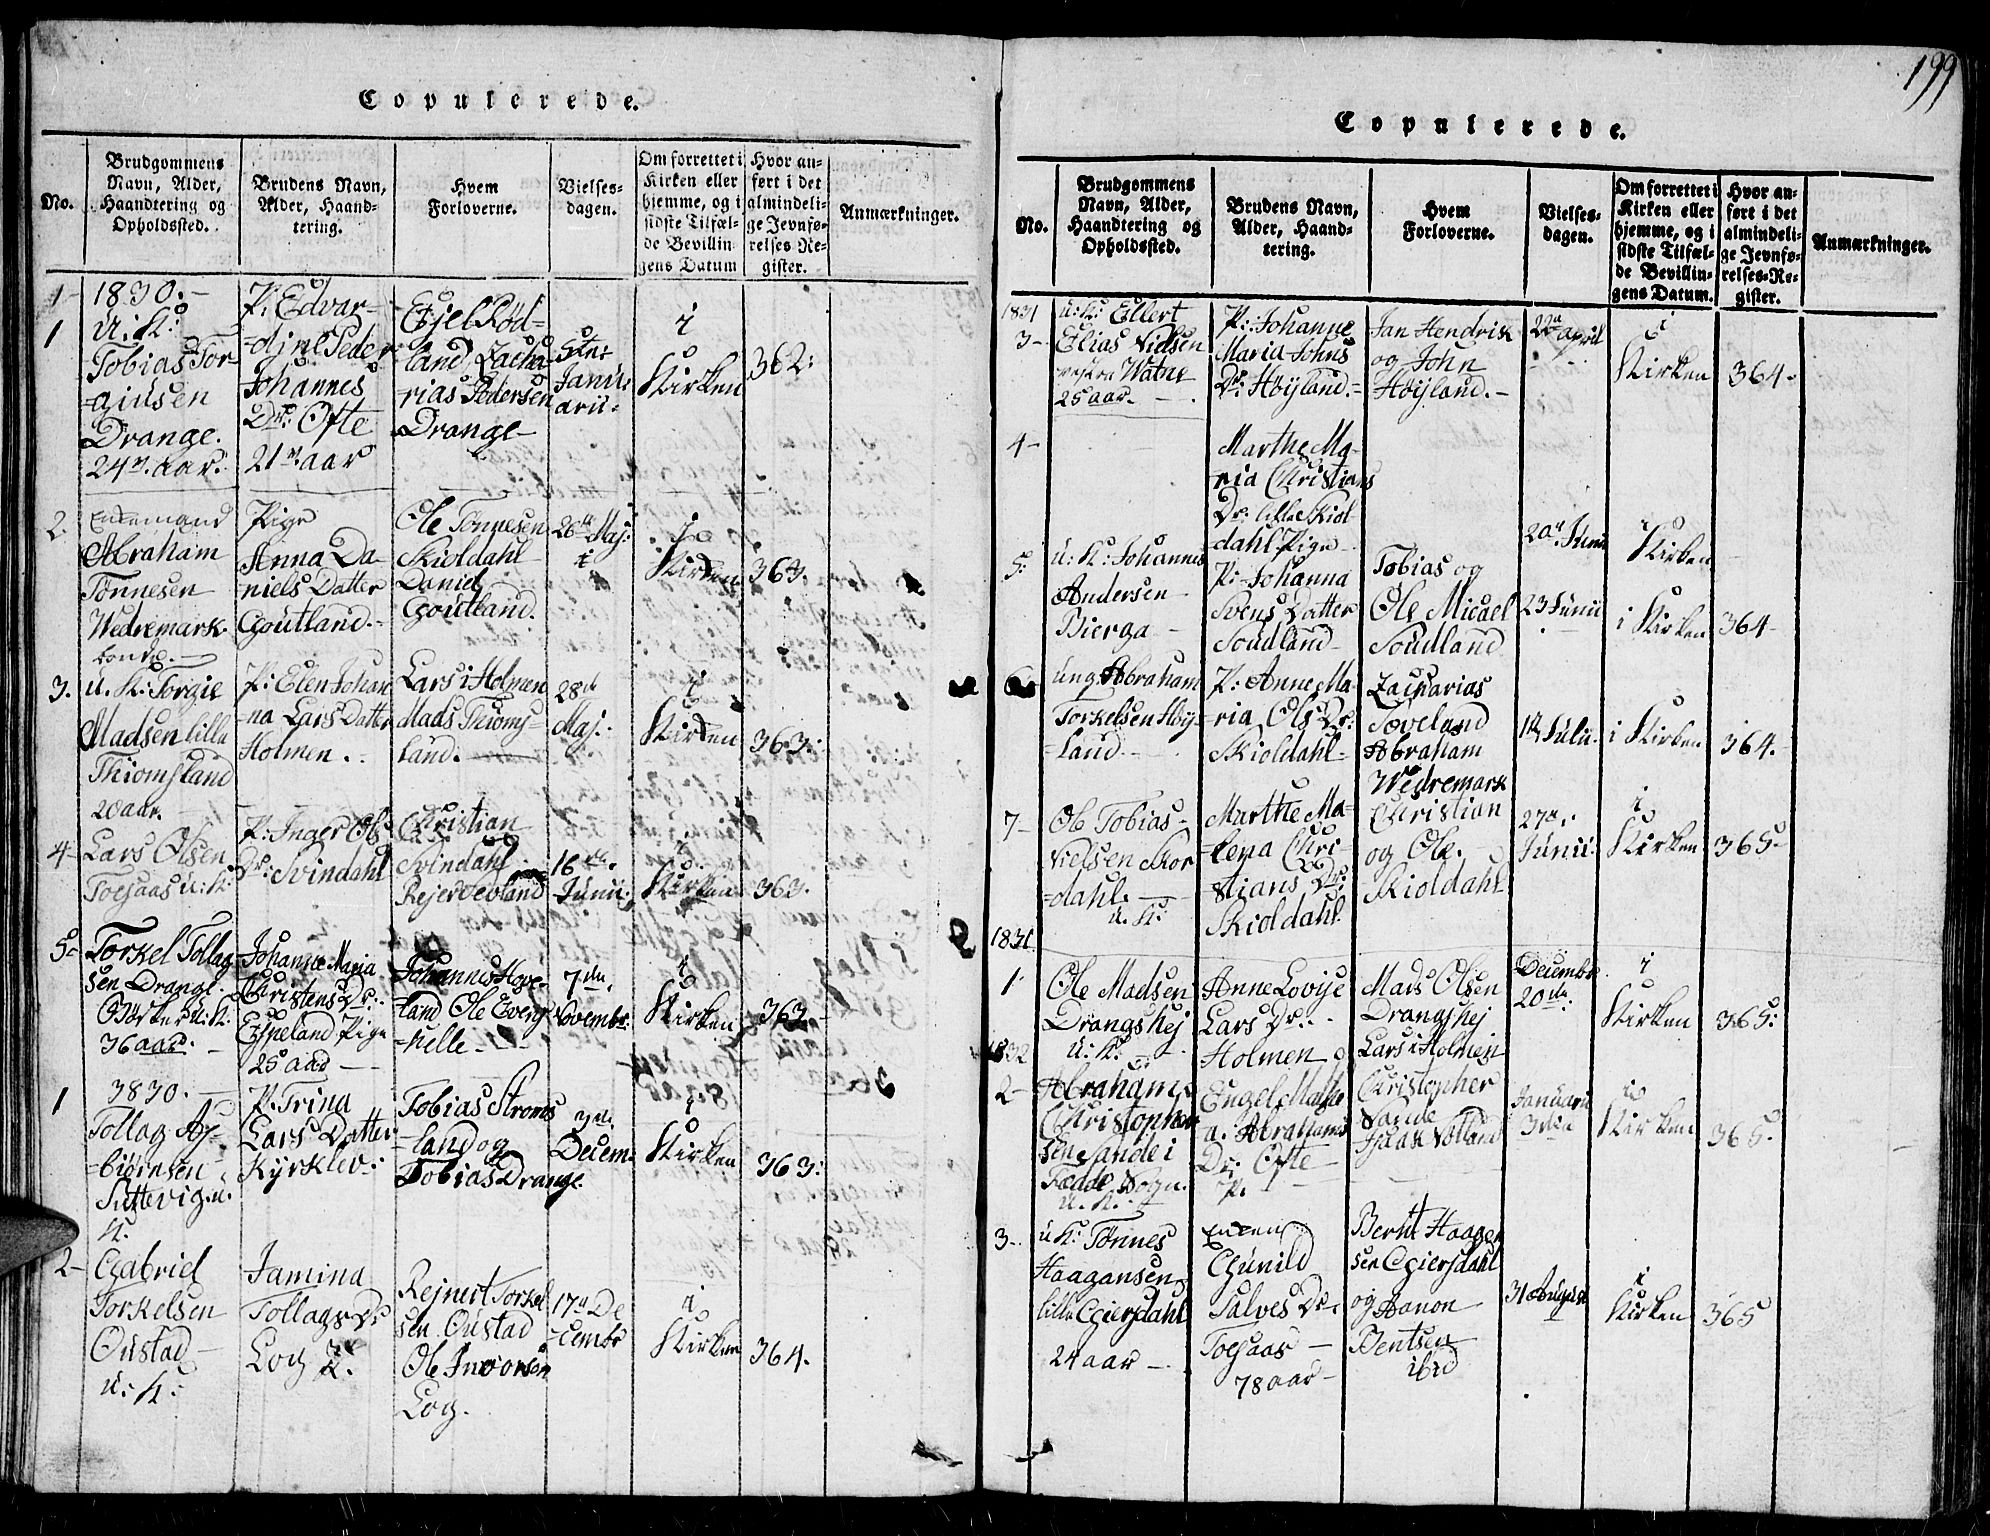 199
Copulerede.
No.
Brudgommens
Navn, Alder,
Haandtering og
Opholdssted.
Brudens Navn,
Alder, Haand-
tering.
Hvem
Forloverne.
Vielses-
dagen.
Om forrettet i
Kirken eller
hjemme, og i
sidste Tilfæl-
de Bevillin-
gens Datum
Hvor an-
ført i det
almindeli-
ge Jevnfø-
relses-Re-
gister.
Anmærkninger.
1-
1830.-
1
U: K:
Tobias Tor-
giusen
Drange.
24 aar.
P: Edvar-
dine Peder
Johannes
Dr: Ofte
21 aar
Ejel Rød-
land Zacha-
rias Pedersen
Drange-
5te
Janu-
arii-
i
Kirken
362:
2.
Enkemand
Abraham
Tønnesen
Wedremark
Pige
Anna Da-
niels Datter
Goutland.-
Ole Tønnesen
Skioldahl
Daniel
Goutland.
26 Maj:
i
Kirken
363.
3.
u. K: Torgie
Madsen lille
Thiomsland
20 aar.
P: Elen Johan
na Lars Datter
Holmen..
Lars i Holmen
Mads Thioms-
land.
28de
Maj.
i
Kirken
363:
4-
Lars Olsen
Toesaas u: K:
P: Inger Ols
Dr: Svindahl
Christian
Svindahl
Rejer
16de
Junii
i
Kirken
363
5-
Torkel Tollag
sen Drange-
u: K:
36 aar.
Johanne Maria
Christens Dr:
Espeland Pige
25 aar
Johannes Hope-
land Ole
-helle
7de
Novembr.
i
Kirken
363
1
3830.-
Tollag As-
biørnsen
u.
K.
P. Trina
Lars Datter
Kyrklev:
Tobias Stroms
-land og
Tobias Drange.
3de
Decem.
i
Kirken
363:
2-
Gabriel
Torkelsen
Oustad-
u: K:
Jamina
Tollags Dr
Log P.
Rejnert Torkel
sen Oustad
Ole Invorsen
Log.
17 De
cembr
i
Kirken
364.
Copulerede.
No.
Brudgommens
Navn, Alder,
Haandtering og
Opholdssted.
Brudens Navn,
Alder, Haand-
tering.
Hvem
Forloverne.
Vielses-
dagen.
Om forrettet i
Kirken eller
hjemme, og i
sidste Tilfæl-
de Bevillin-
gens Datum.
Hvor an-
ført i det
almindeli-
ge Jevnfø-
relses-Re-
gister.
Anmærkninger.
1831
3-
u: K: Ellert
Elias Nielsen
Watne
25 aar.
P: Johanne
Maria Johns
Dr: Høyland.-
Jan Hendrik
og John
Høyland.-
22 april
i
Kirken
364-
4-
Marthe Ma-
ria Christians
Dr: lille Skiol
dahl Pige
20 Junii
i
Kirken
5:
u: K: Johannes
Andersen
Bierga
P: Johanna
Svens Datter
Soudland
Tobias og
Ole Micael
Soudland
23 Junii
i Kirken
364-
6-
ung Abraham
Torkelsen Høy-
land.
P: Anne Ma-
ria Ols Dr.
Skioldahl-
Zacharias
Jøveland
Abraham
Wedremark
1te Julii.
i Kirken
364.
7-
Ole Tobias-
Nielsen Skor
dahl.
u. K:
Marthe Ma-
lena Chri-
stians Dr:
Skioldahl
Christian
og Ole.
Skioldahl
27
Junii
i
Kirken
365-
1831
1-
Ole Madsen
Drangshej
u: K:
Anne Lovise
Lars Dr:
Holmen
Mads Olsen
Drangshej
Lars i Holmen
Decembr
20de.
i
Kirken
365:
1832
2-
Abraham
Christopher
sen Sande i
Fædde Sogn.
u. K:
Engel Malle
a. Abrahams
Dr: Ofte
P.
Christopher
Sande
Isaak Nolland
Januarii
3die
i
Kirken
365.
3-
u: K: Tønnes
Haagansen
lille Giersdahl
24 aar
Enken
Gunild
Salves Dr:
Toesaas
78 aar-
Bernt Haagen
sen Giersdahl
og Aanon
Bentsen
ibid
31 August
i
Kirken
365